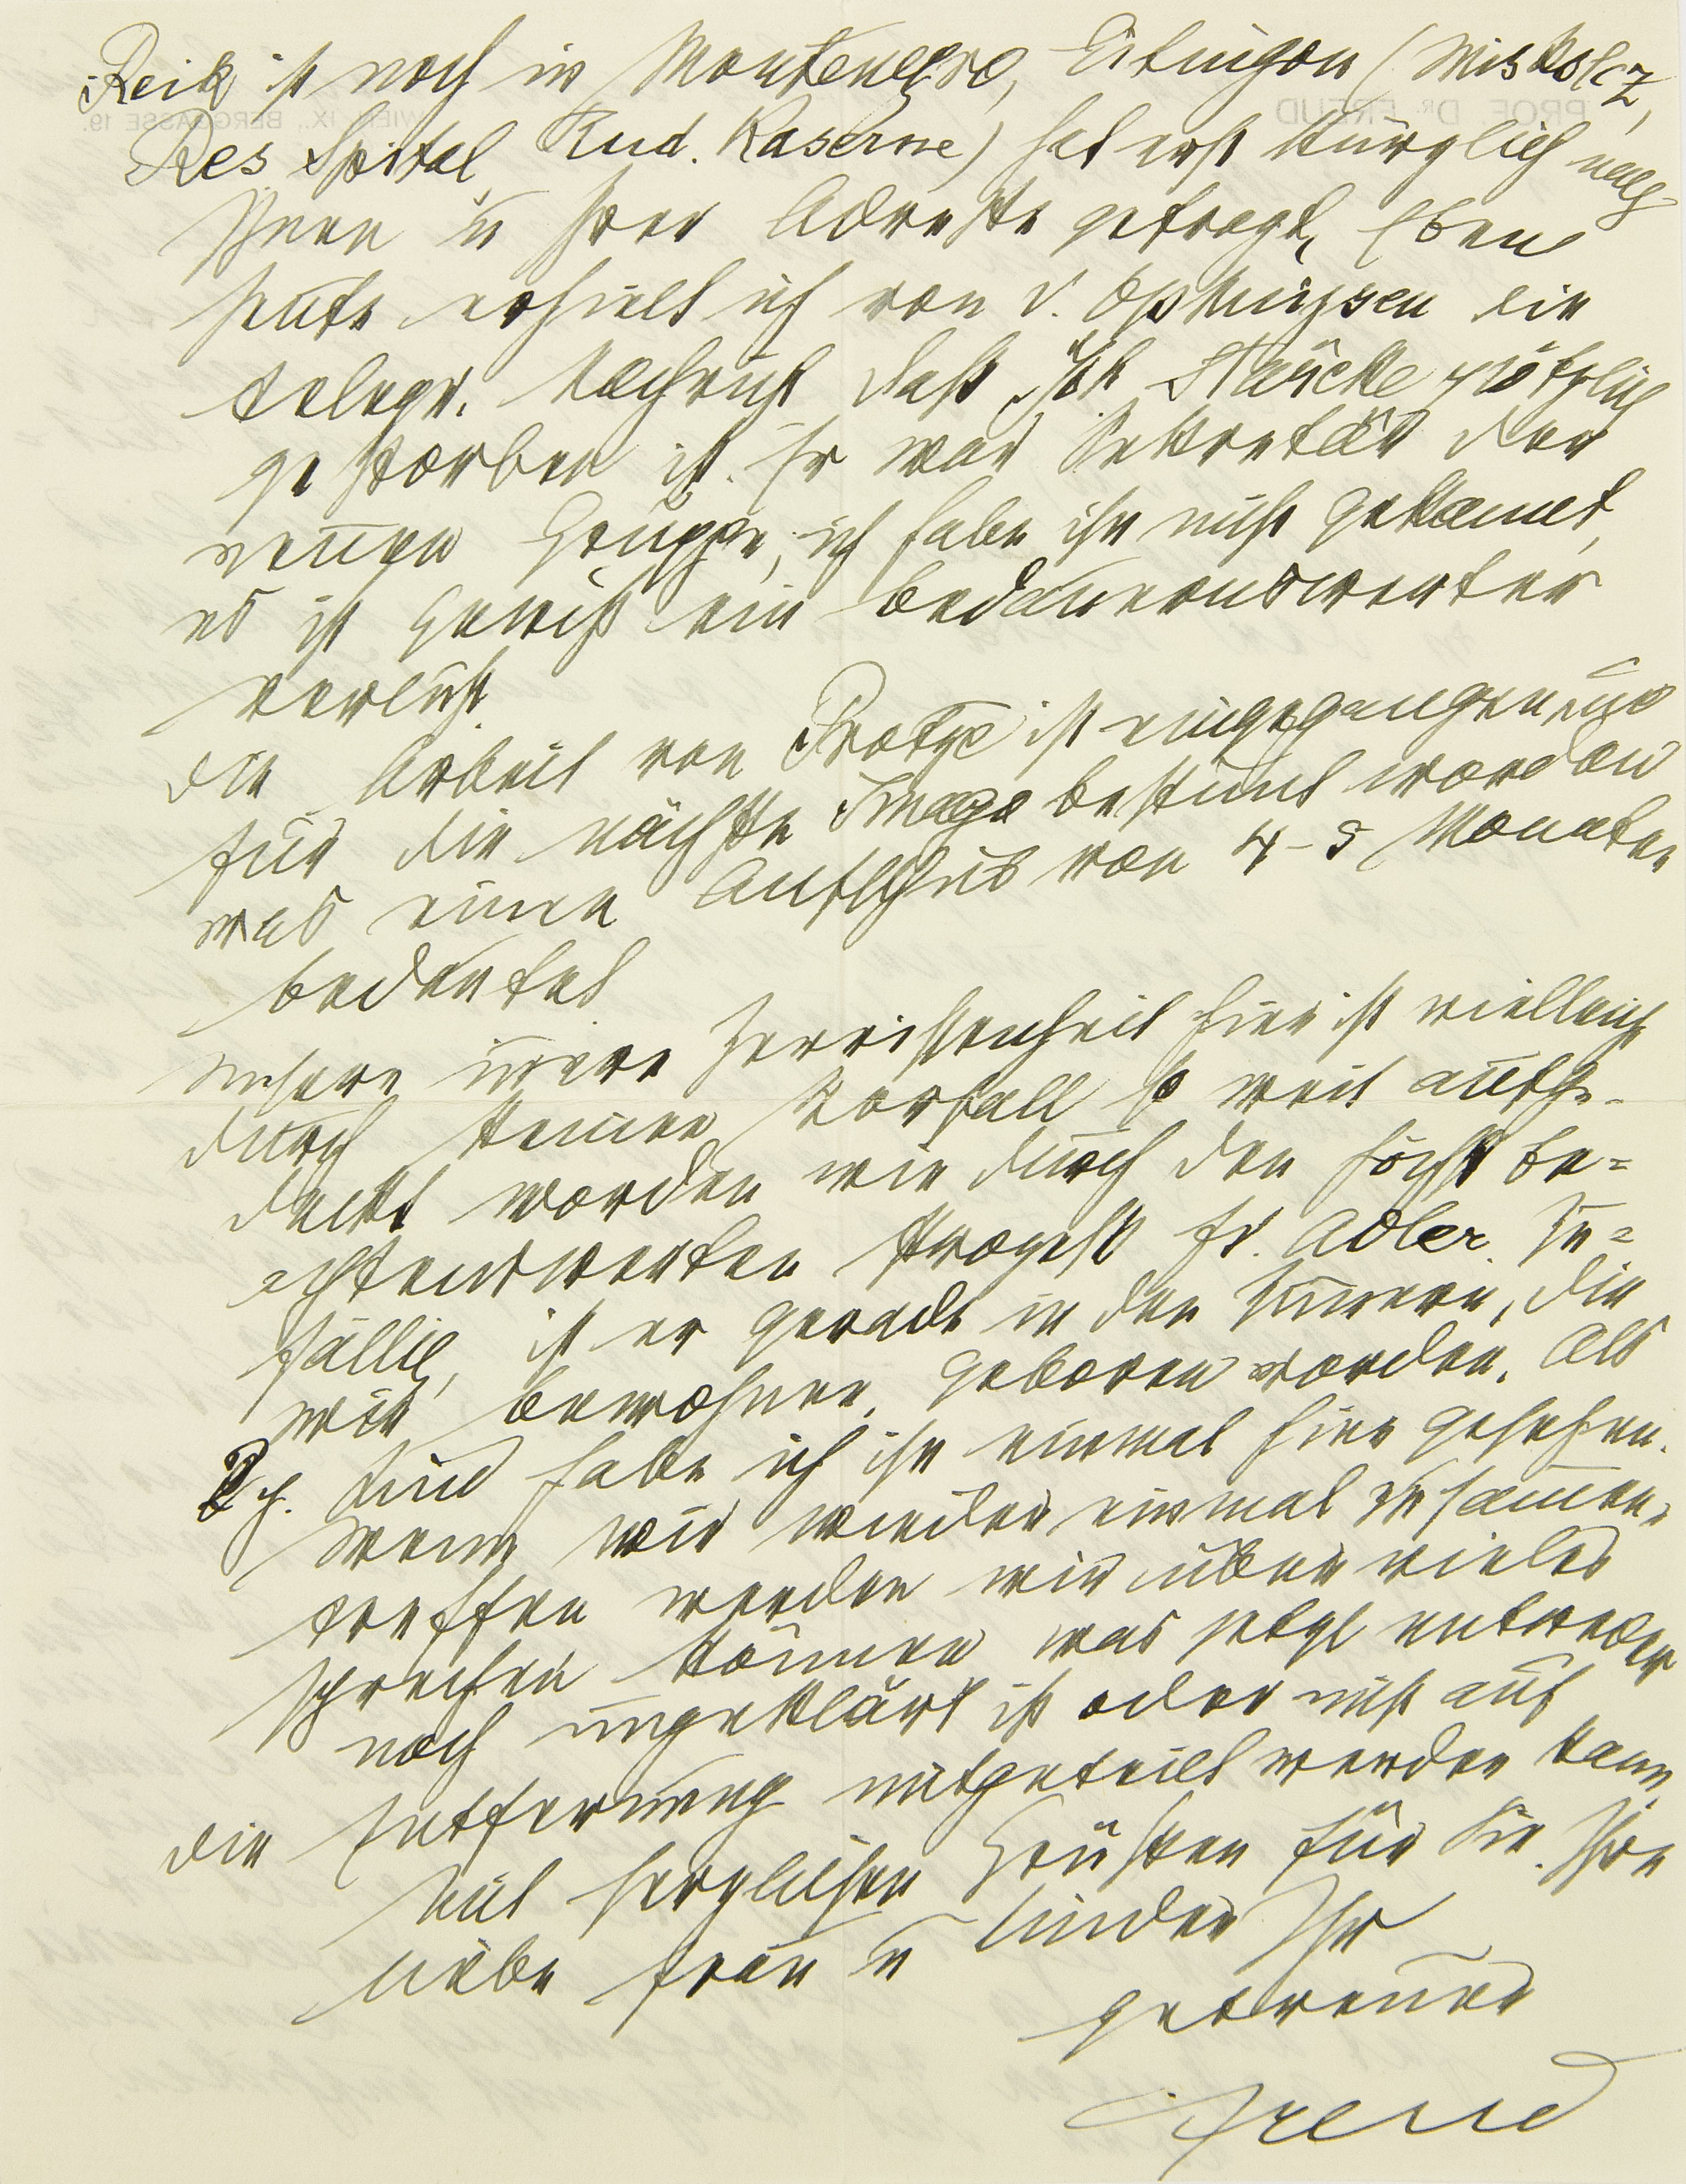 Reik ist noch in Montenegro, Eitingon (Miskolcz,
Res Spital Rud. Kaserne) hat erst kürzlich nach
Ihnen u Ihrer Adresse gefragt. Eben
heute erhielt ich von v. Ophuijsen die
telegr. Nachricht daß Joh Stärcke plötzlich
gestorben ist. Er war Sekretär der
neuen Gruppe, ich habe ihn nicht gekannt,
es ist gewiß ein bedauernswerter
Verlust.
Die Arbeit von ist eingegangen und
für die nächste Imago bestimt worden
was einen Aufschub von 4-5 Monaten
bedeutet
Unsere innere Zerrissenheit hier ist vielleicht
durch keinen Vorfall so weit aufge-
deckt worden wie durch den höchst be-
achtenswerten Prozeß Fr. Adler. Zu-
fällig ist er gerade in den Zimmern, die
wir bewohnen, geboren worden. Als
2j. Kind habe ich ihn einmal hier gesehen.
Wenn wir wieder einmal zusammen-
treffen werden wir über vieles
sprechen können was jetzt entweder
noch ungeklärt ist oder nicht auf
die Entfernung mitgeteilt werden kann.
Mit herzlichen Grüßen für Sie, Ihre
liebe Frau u Kinder Ihr
getreuer
Freud
PROF. DR. FREUD
WIEN, IX., BERGGASSE 19.